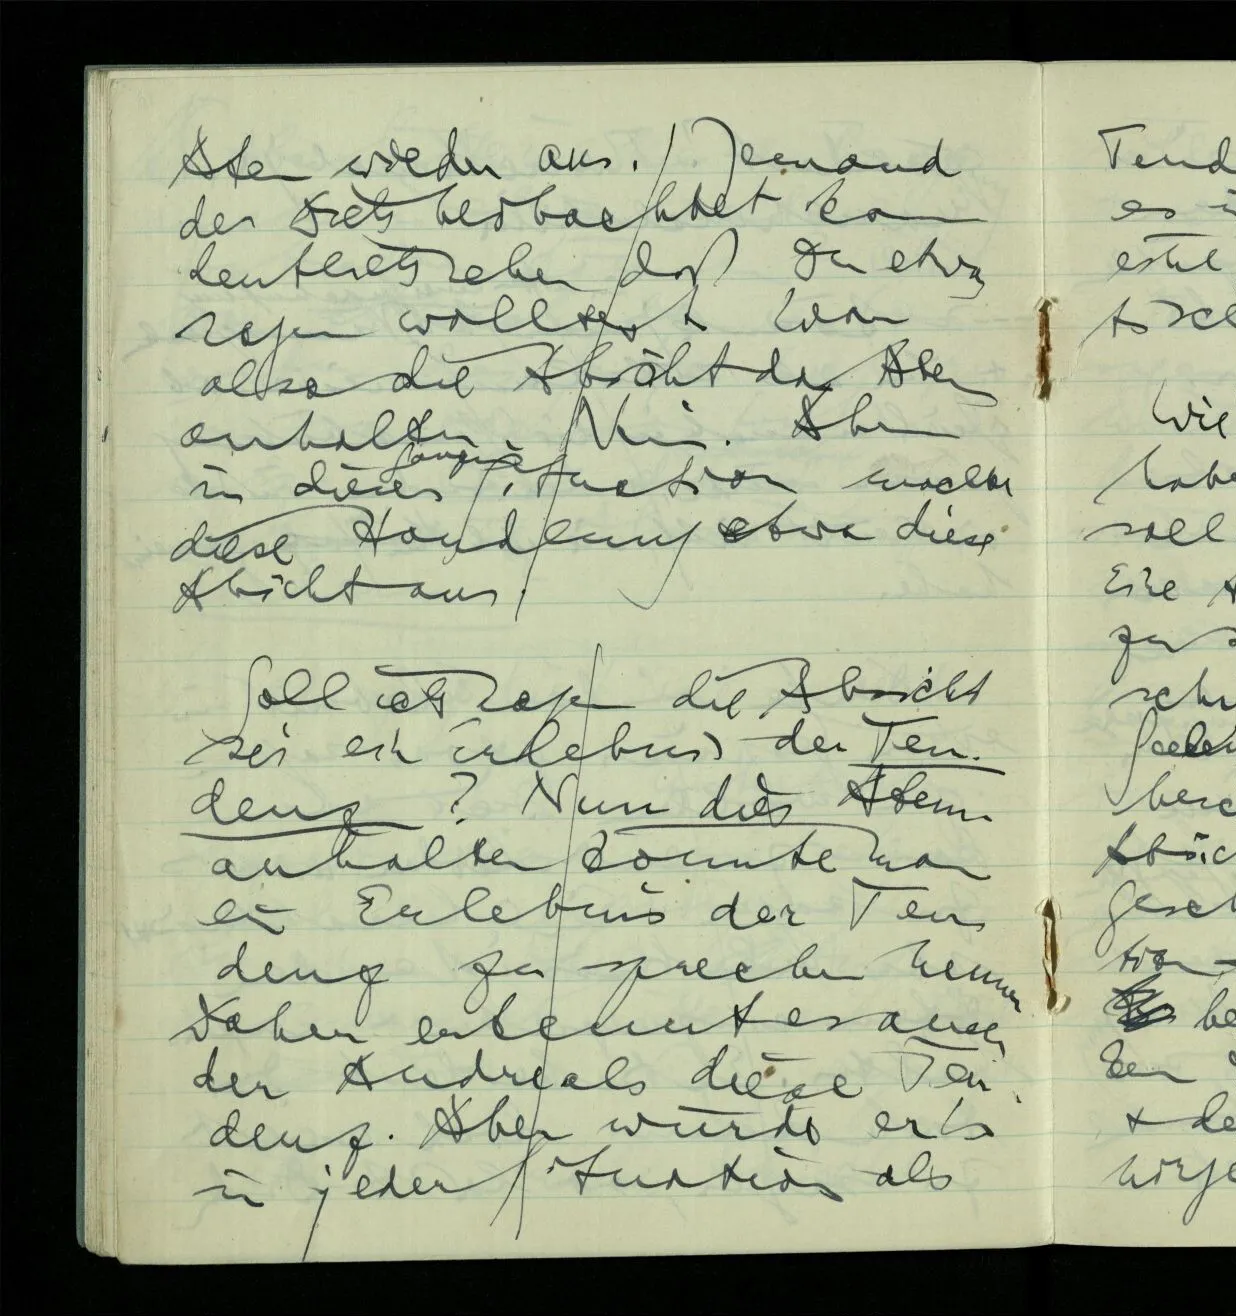 Atem wieder aus. / Jemand
der Dich beobachtet kann
deutlich sehen daß Du etwas
sagen wolltest. War
also die Absicht das Atem
anhalten. Nein. Aber
in dieser ganzen Situation machte
diese Handlung etwa diese
Absicht aus.
Soll ich sagen die Absicht
sei ein Erlebnis der Ten-
denz? Nun dies Atem
anhalten könnte man
ein Erlebnis der Ten
denz zu sprechen nennen
Daher erkennt es auch
der Andre als diese Ten-
denz. Aber würde er es
in jeder Situation als
Tend
es i
eine
tisch
Wie
habe
soll
Eine A
zu s
schr
Seele
besc
Absic
Gesch
tion
be
den
+ de